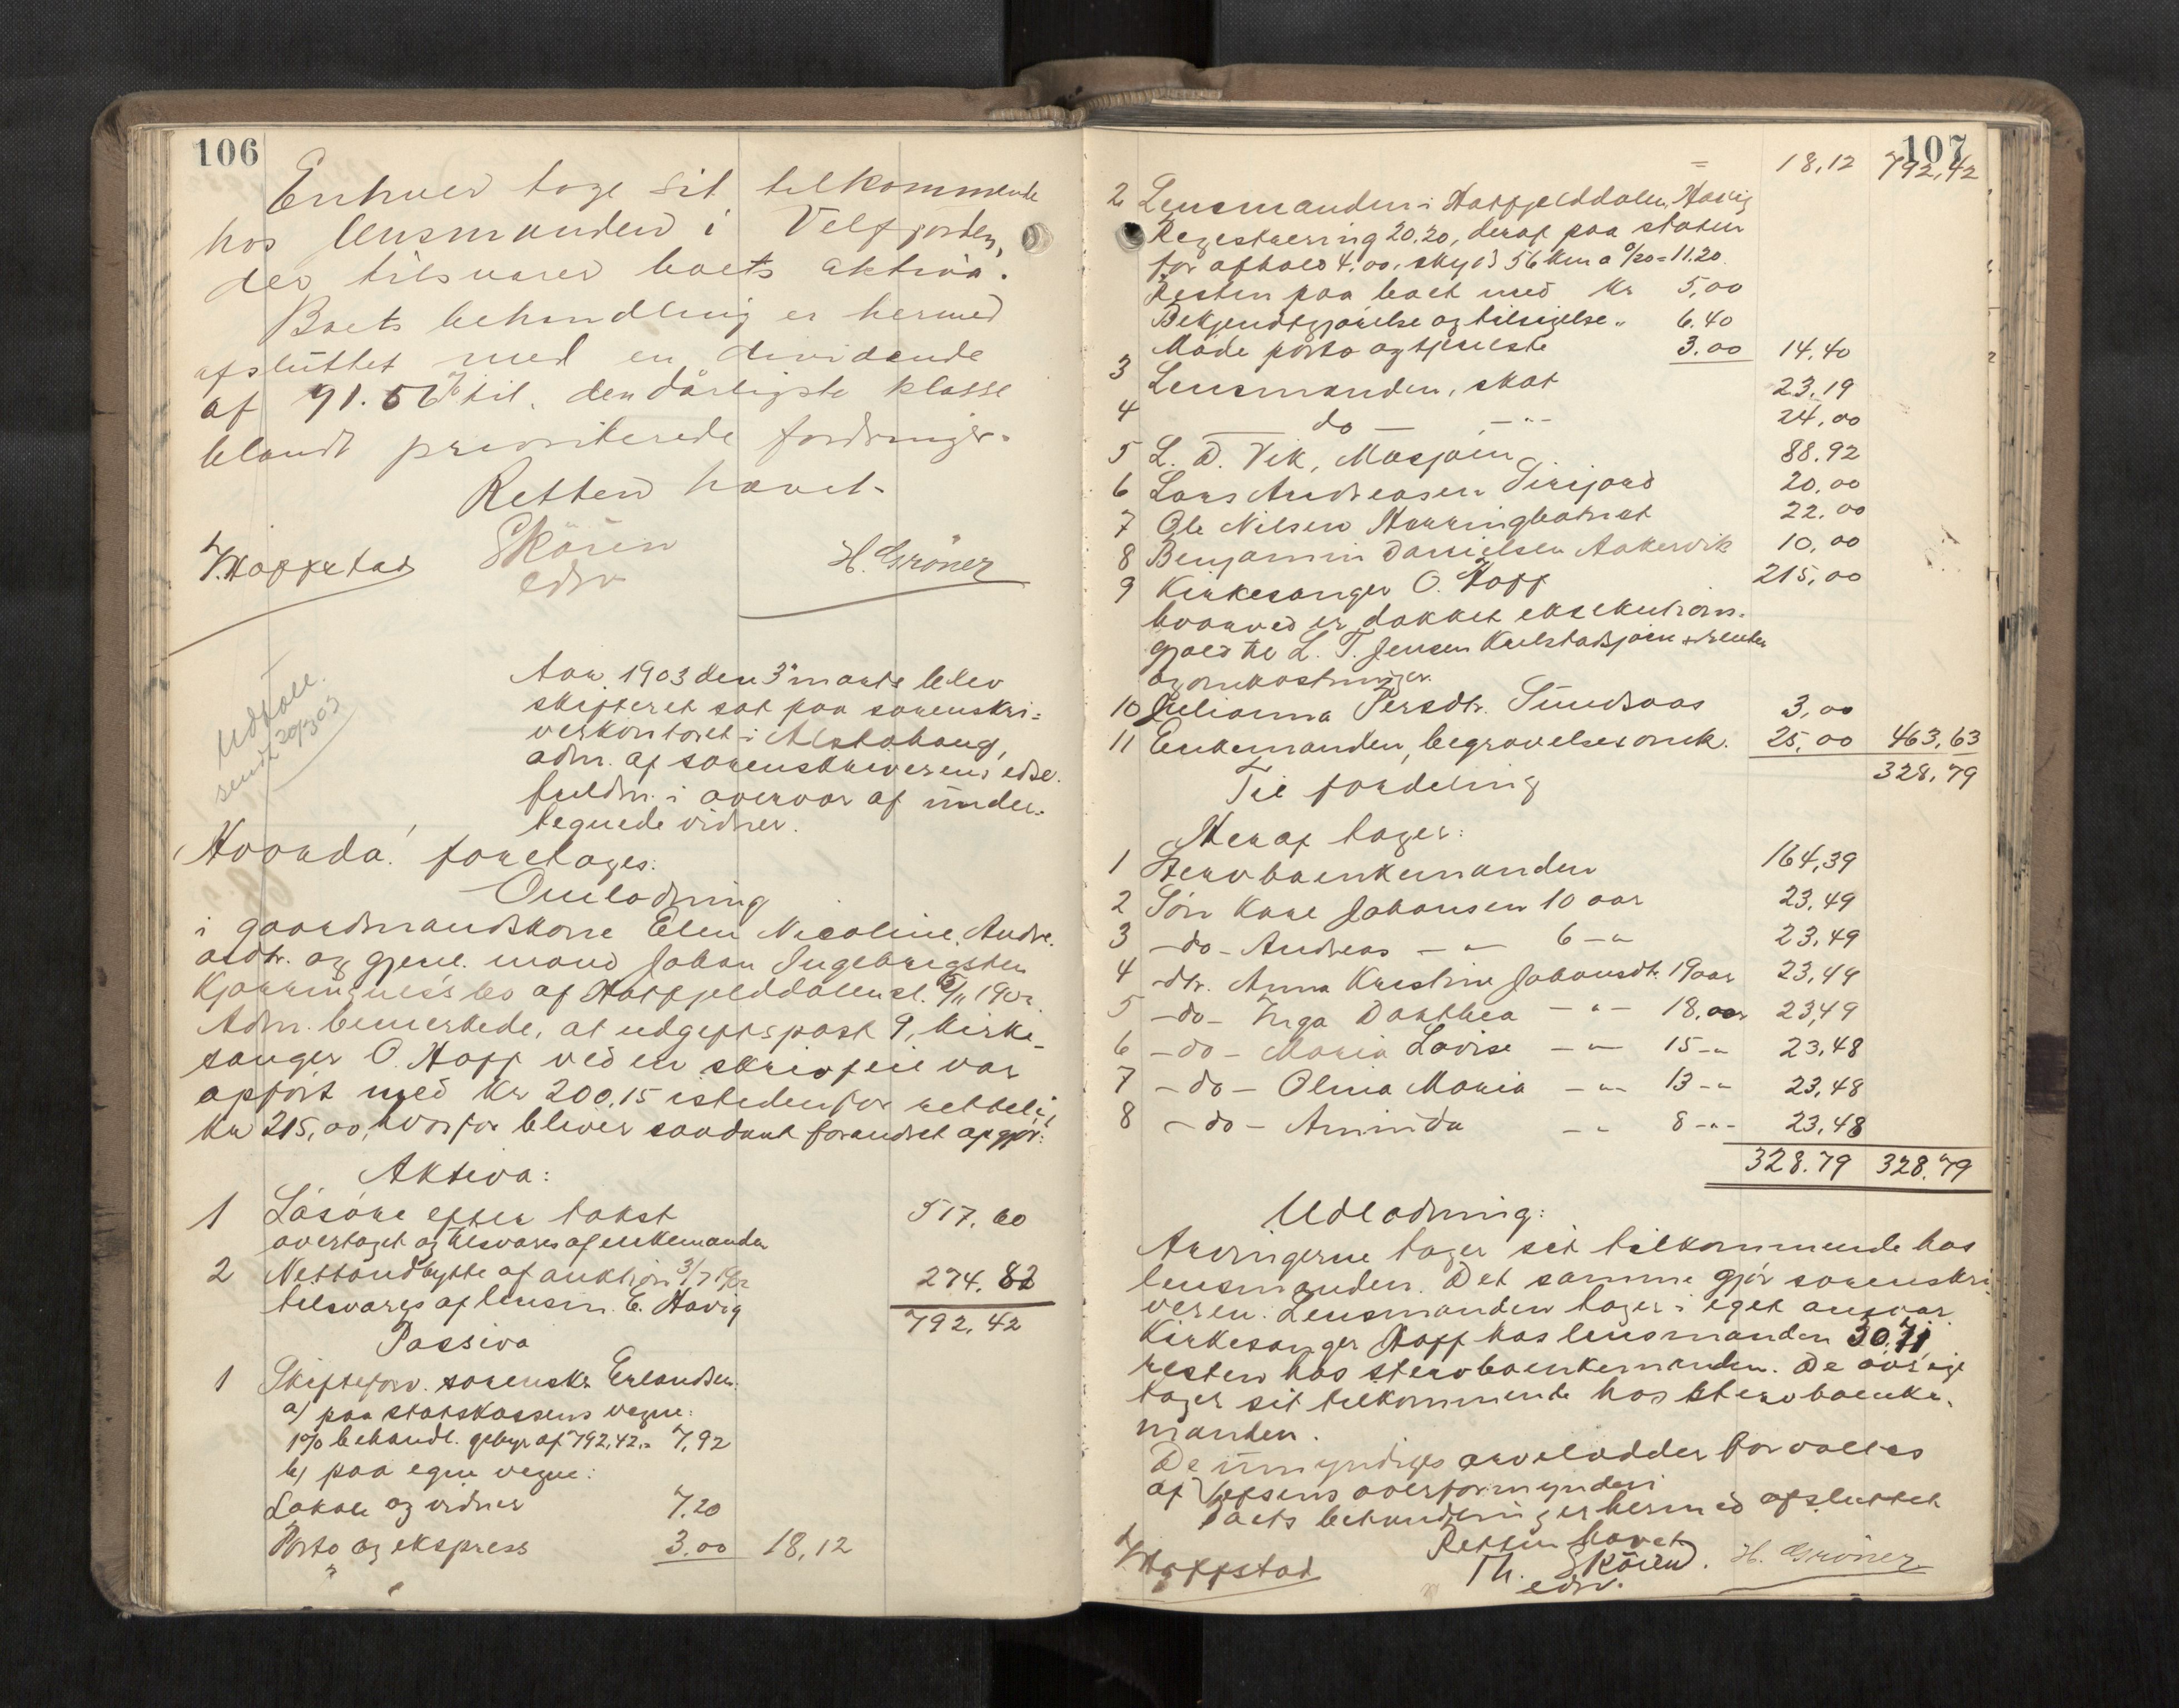 106
Enhver tage sit tilkommende
hos lensmanden i Velfjorden,
der tilsvarer boets aktiva.
Boets behandling er hermed
afsluttet med en dividende
af 91.56 % til den dårligste klasse
blandt prioriterede fordringer.
Retten hævet.
Skören
edsv
H. Gröner
Udskall.
sendt 20/3 03
Aar 1903 den 3 marts blev
skifteret sat paa sorenskri=
verkontoret i Alstahaug,
adm. af sorenskriverens edsv.
fuldm. i overvær af under-
tegnede vidner.
Hvorda! foretages:
Omlodning
i gaardmandskone Elen Nicoline Andre-
asdtr. og gjenl. mand Johan Ingebrigtsen
bo af Hatfjelddalen sl. 5/11 1902.
Adm. bemerkede, at udgiftspost 9, kirke-
sanger O. Hoff ved en skrivfeil var
opført med kr 200,15 istedenfor rettelig
kr 215,00, hvorfor bliver saadant forandret opgjör:
Aktiva:
1 Lösöre efter takst 517.60
overtaget og tilsvares af enkemanden
2 Nettoudbytte af auktion 3/7 1902 274.82
tilsvares af lensm. E. Havig 792.42
Passiva
1 Skifteforv. sorenskr. Erlandsen:
a) paa statskassens vegne:
1% behandl. gebyr af 792,42 = 7,92
b) paa egne vegne:
Lokale og vidner 7.20
Porto og ekspress 3.00 18,12
107
= 18,12 792,42
2 Lensmanden i Hatfjelddalen, Havig
Registrering 20.20, deraf paa staten
for afhold 4.00, skyds 56 km a 0/20 = 11.20.
Resten paa boet med kr 5,00
Bekjendtgjørelse og tilsigelse " 6.40
Møde porto og tjeneste 3.00 14.40
3 Lensmanden, skat 23.19
4 — do — — " - 24,00
5 L. D. Vik, Mosjøen 88.92
6 Lars Andreasen Sirijord 20,00
7 Ole Nilsen 22,00
8 Benjamin Danielsen Aakervik 10,00
9 Kirkesanger O. Hoff 215,00
hvorved er dækket eksekutions-
gjæld til L. T. Jensen + renter
og omkostninger.
10 Julianna Persdtr. Sundsaas 3,00
11 Enkemanden, begravelsesomk. 25,00 463,63
Til fordeling 328,79
Heraf tager:
1 Stervboenkemanden 164,39
2 Sön Karl Johansen 10 aar 23,49
3 — do — Andreas — " — 6 — " 23,49
4 — dtr. Anna Kristine Johansdtr. 19 aar 23,49
5 — do — Inga Dorthea — " — 18. aar 23,49
6 — do — Maria Lovise — " — 15 — " 23,48
7 — do — Olina Maria — " — 13 — " 23,48
8 — do — Aminda — " 8 — " - 23,48
328.79 328.79
Udlodning:
Arvingerne tager sit tilkommende hos
lensmanden. Det samme gjör sorenskri-
veren. Lensmanden tager i eget ansvar.
Kirkesanger Hoff hos lensmanden 30.71
resten hos stervboenkemanden. De övrige
tager sit tilkommende hos stervboenke-
manden.
De umyndiges arvelodder forvaltes
af Vefsens overformynderi
Boets behandling er hermed afsluttet
Retten hævet
Th. Skören.
edsv.
H. Gröner